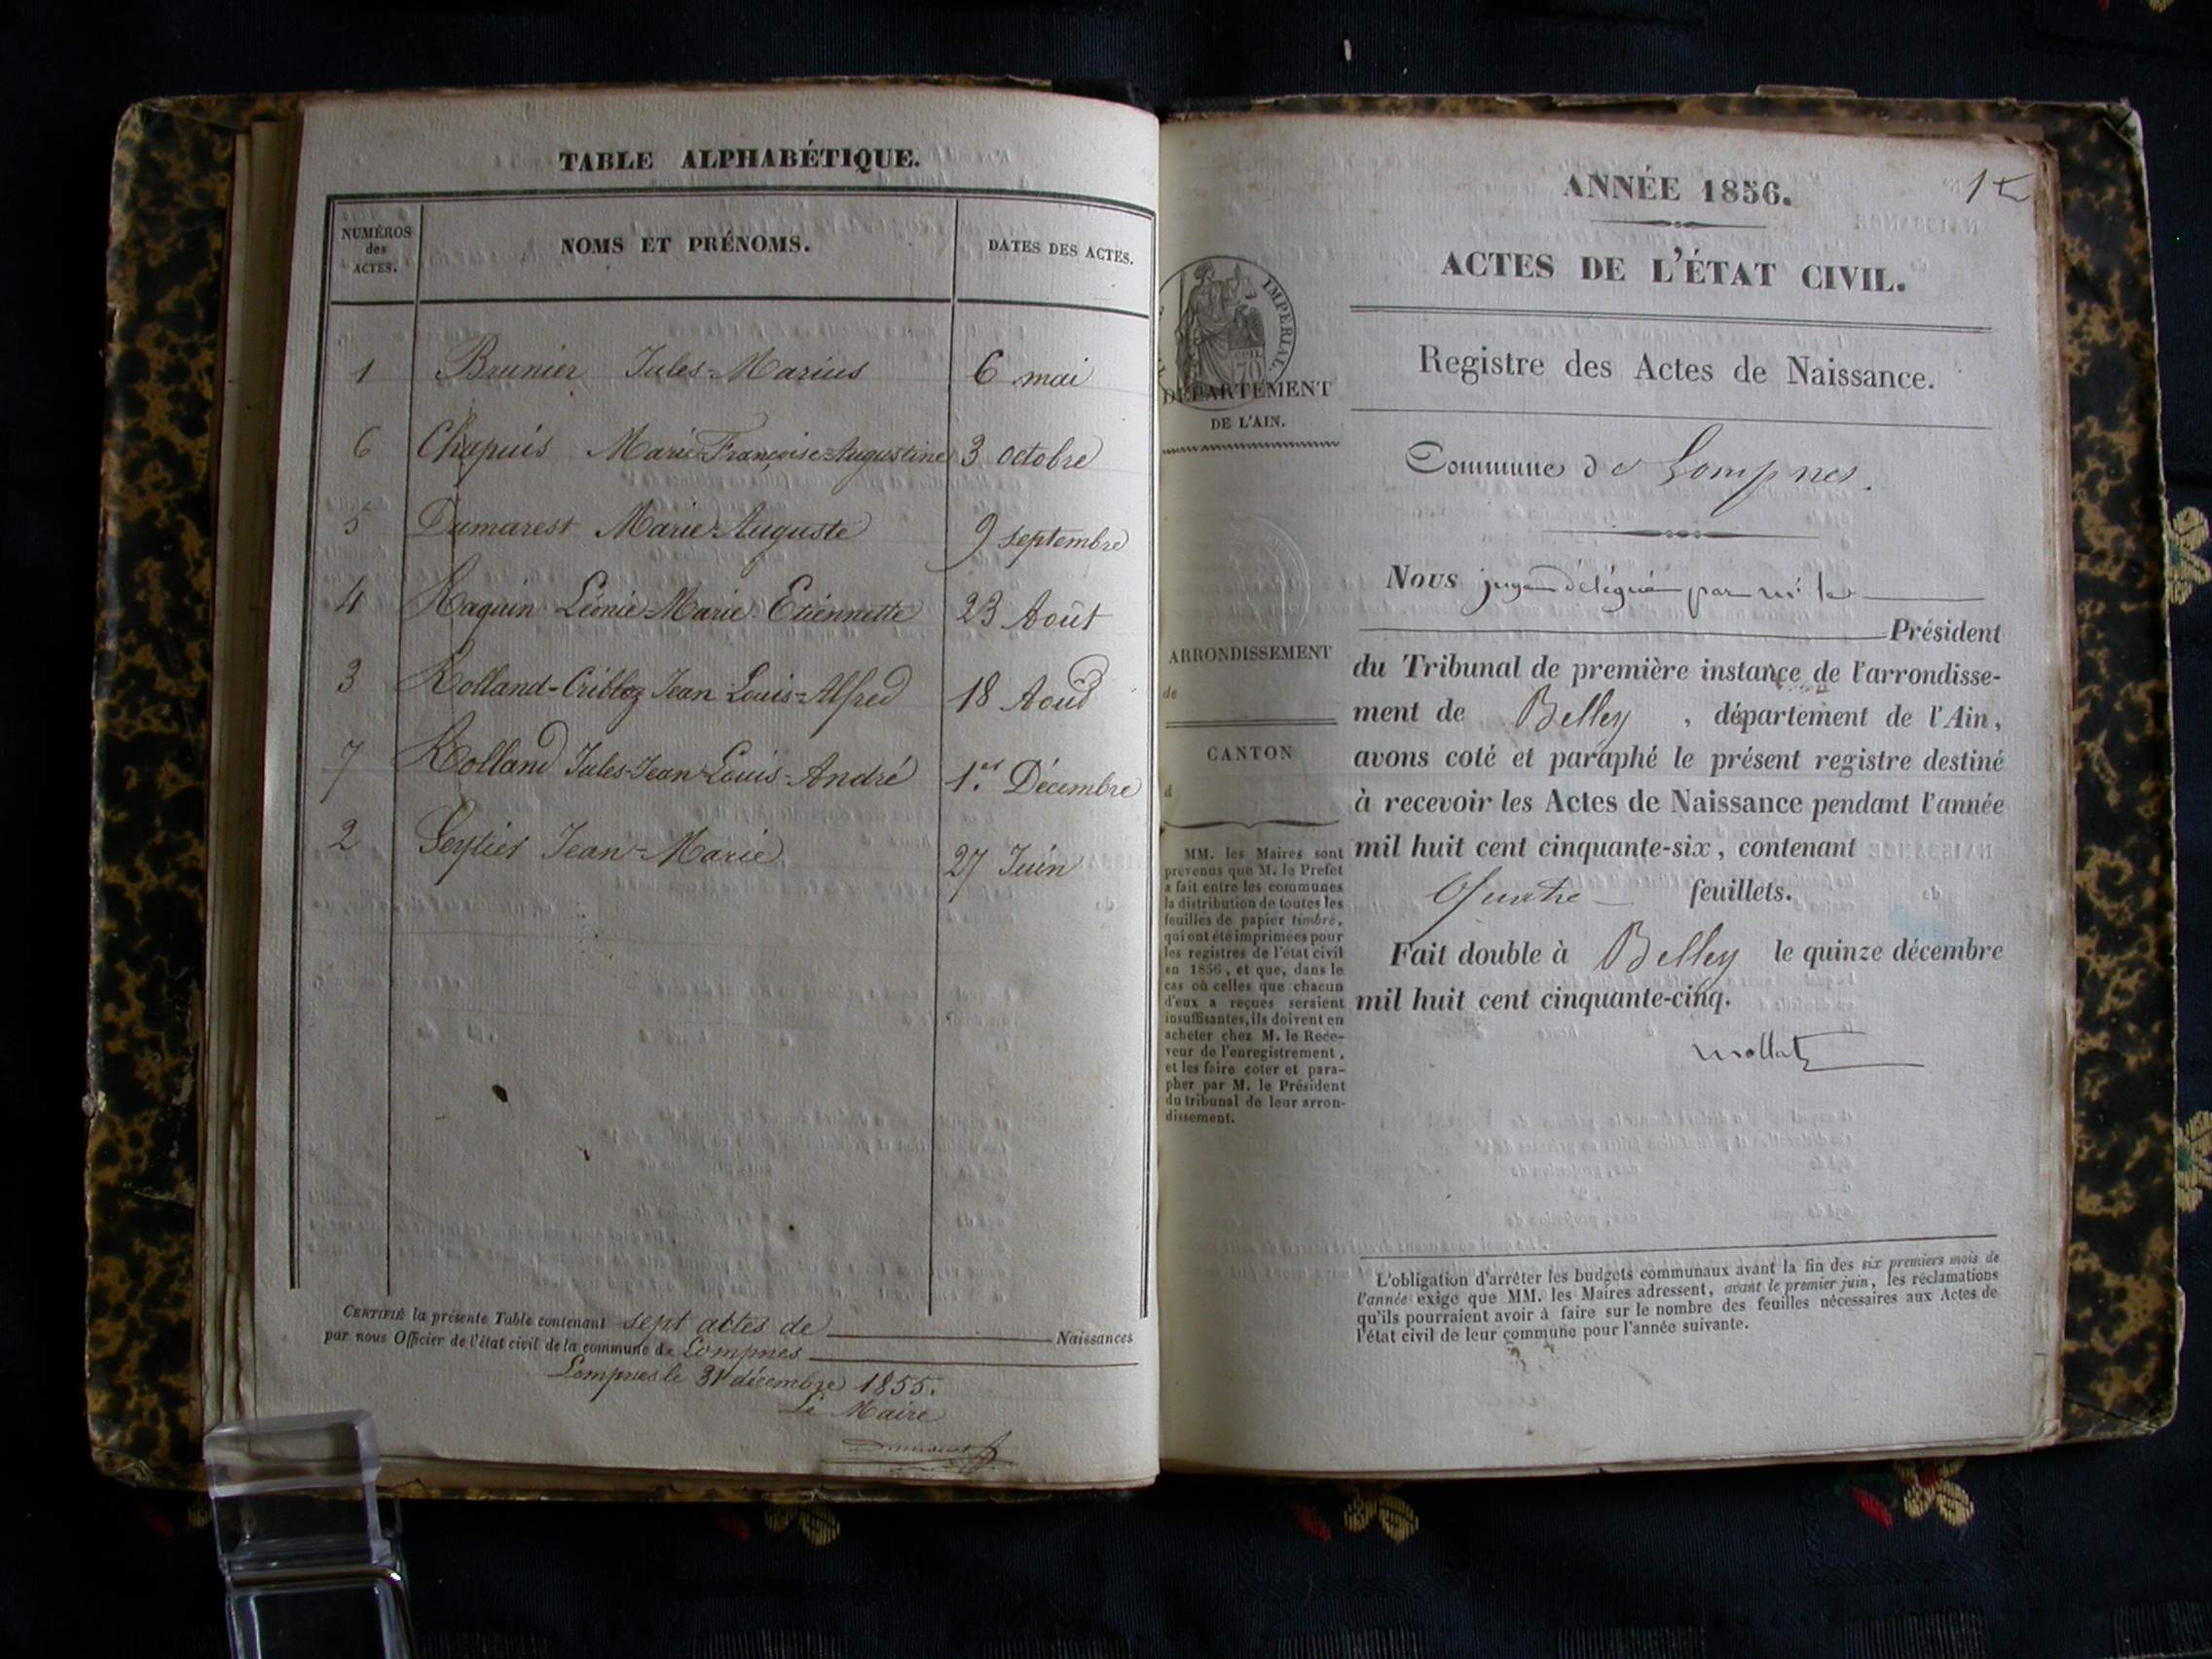 TABLE ALPHABÉTIQUE.
NUMÉROS
des
ACTES.
NOMS ET PRÉNOMS.
DATES DES ACTES.
1 Brunier Jules-Marius 6 mai
6 Chapuis Marie-Françoise-Augustine 3 octobre
5 Dumarest Marie-Auguste 9 septembre
4 Raquin Léonie-Marie-Etiennette 23 Août
3 Rolland-Cribloz Jean Louis-Alfred 18 Aoud
7 Rolland Jules-Jean-Louis-André 1.er Décembre
2 Jean-Marie 27 Juin
CERTIFIÉ la présente Table contenant sept actes de Naissances
par nous Officier de l'état civil de la commune de Lompnes
Lompnes le 31 décembre 1855.
Le Maire
1
ANNÉE 1856.
ACTES DE L'ÉTAT CIVIL.
Registre des Actes de Naissance.
IMPÉRIAL
70
DÉPARTEMENT
DE L'AIN.
ARRONDISSEMENT
de
CANTON
d
MM. les Maires sont
prévenus que M. le Préfet
a fait entre les communes
la distribution de toutes les
feuilles de papier timbré,
qui ont été imprimées pour
les registres de l'état civil
en 1856, et que, dans le
cas où celles que chacun
d'eux a reçues seraient
insuffisantes, ils doivent en
acheter chez M. le Rece-
veur de l'enregistrement,
et les faire coter et para-
pher par M. le Président
du tribunal de leur arron-
dissement.
Commune de Lompnes.
Nous juge délégué par mr le
Président
du Tribunal de première instance de l'arrondisse-
ment de Belley, département de l'Ain,
avons coté et paraphé le présent registre destiné
à recevoir les Actes de Naissance pendant l'année
mil huit cent cinquante-six, contenant
Quatre feuillets.
Fait double à Belley le quinze décembre
mil huit cent cinquante-cinq.
L'obligation d'arrêter les budgets communaux avant la fin des six premiers mois de
l'année exige que MM. les Maires adressent, avant le premier juin, les réclamations
qu'ils pourraient avoir à faire sur le nombre des feuilles nécessaires aux Actes de
l'état civil de leur commune pour l'année suivante.